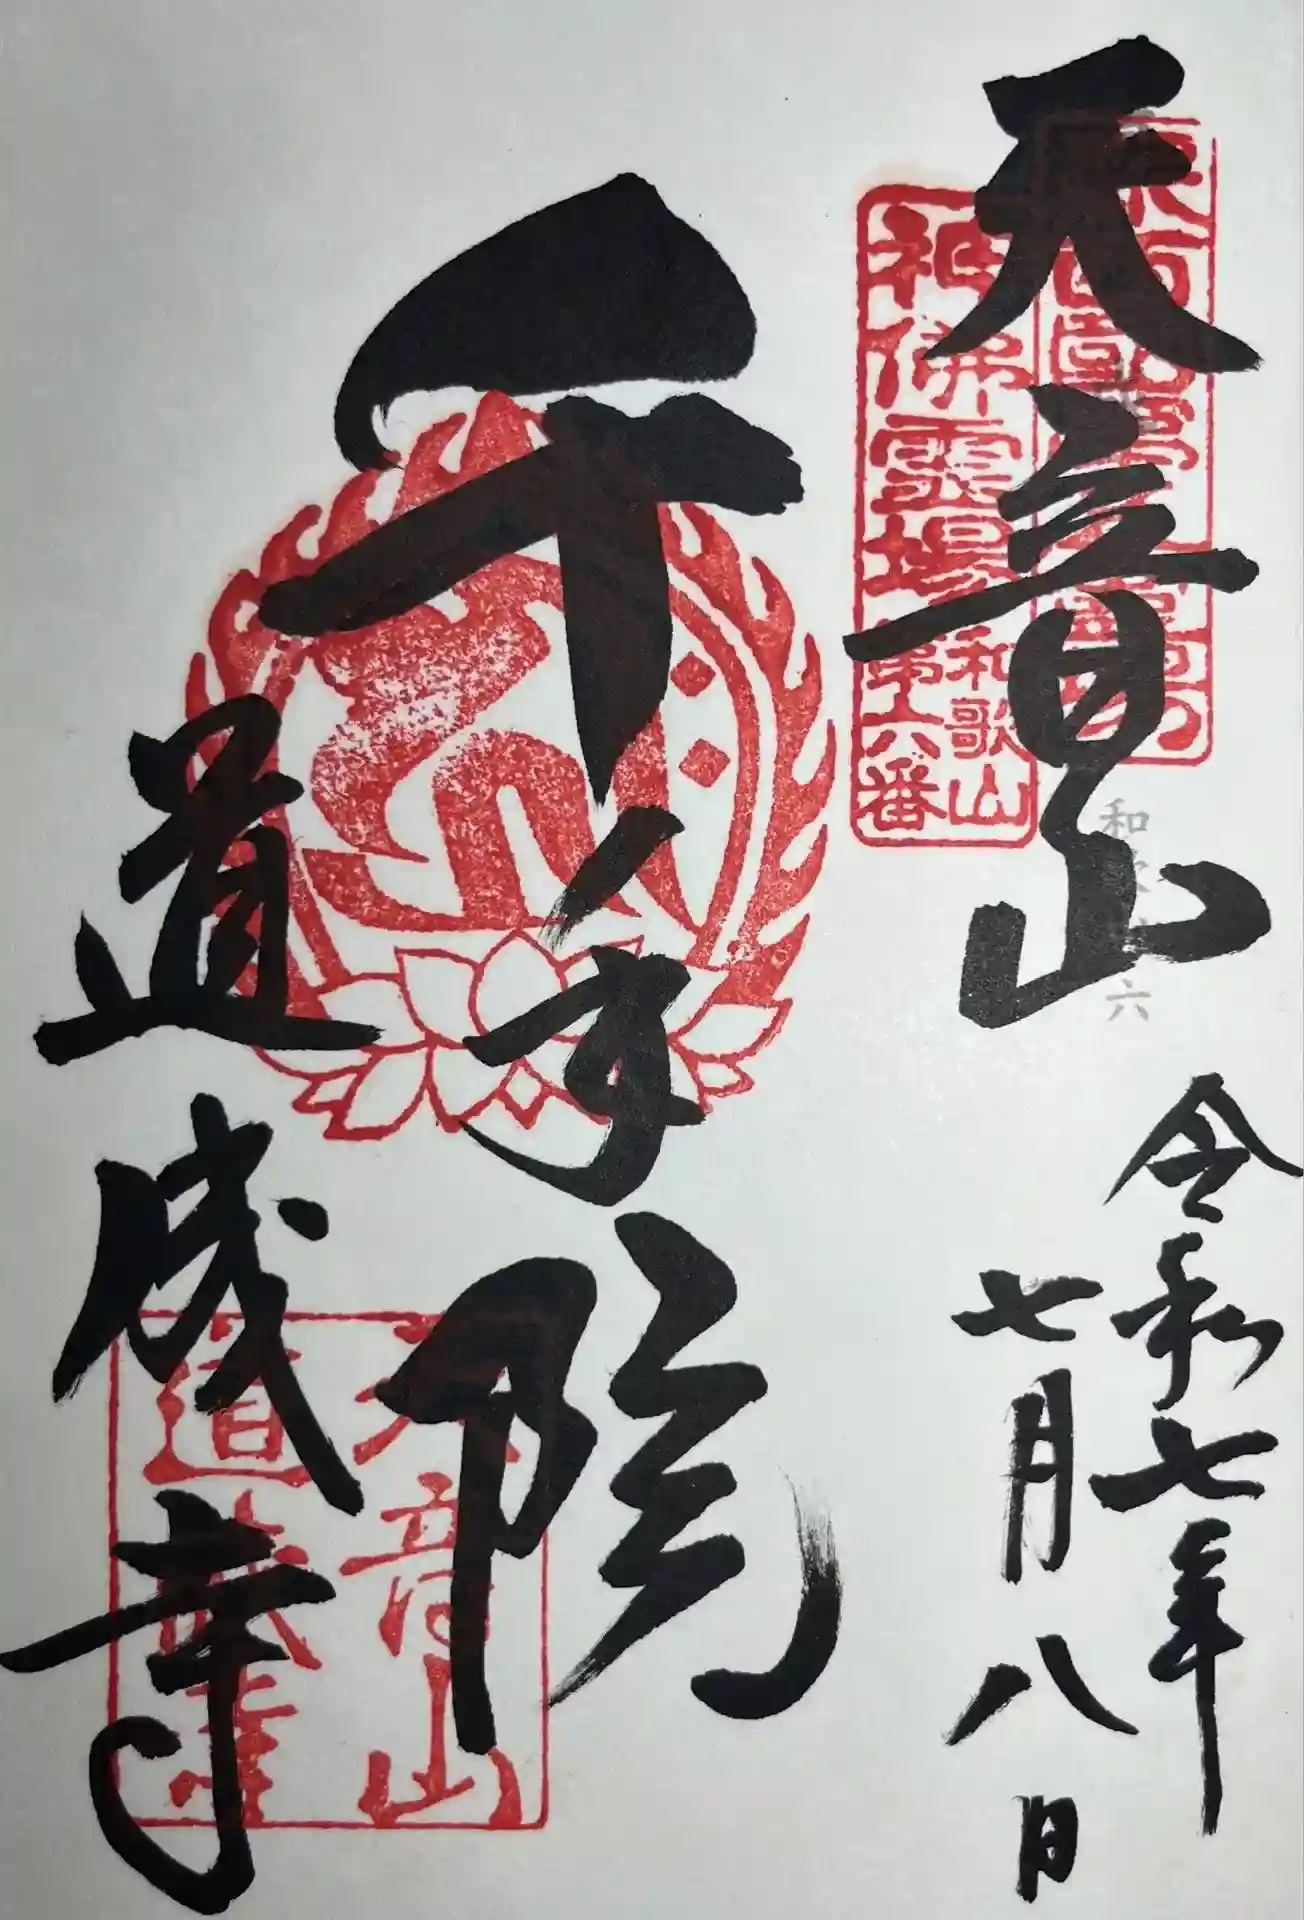 天音山
令和七年
七月八日
千手院
道成寺
神佛霊場
和歌山
第六番
天音山
道成寺
和
六